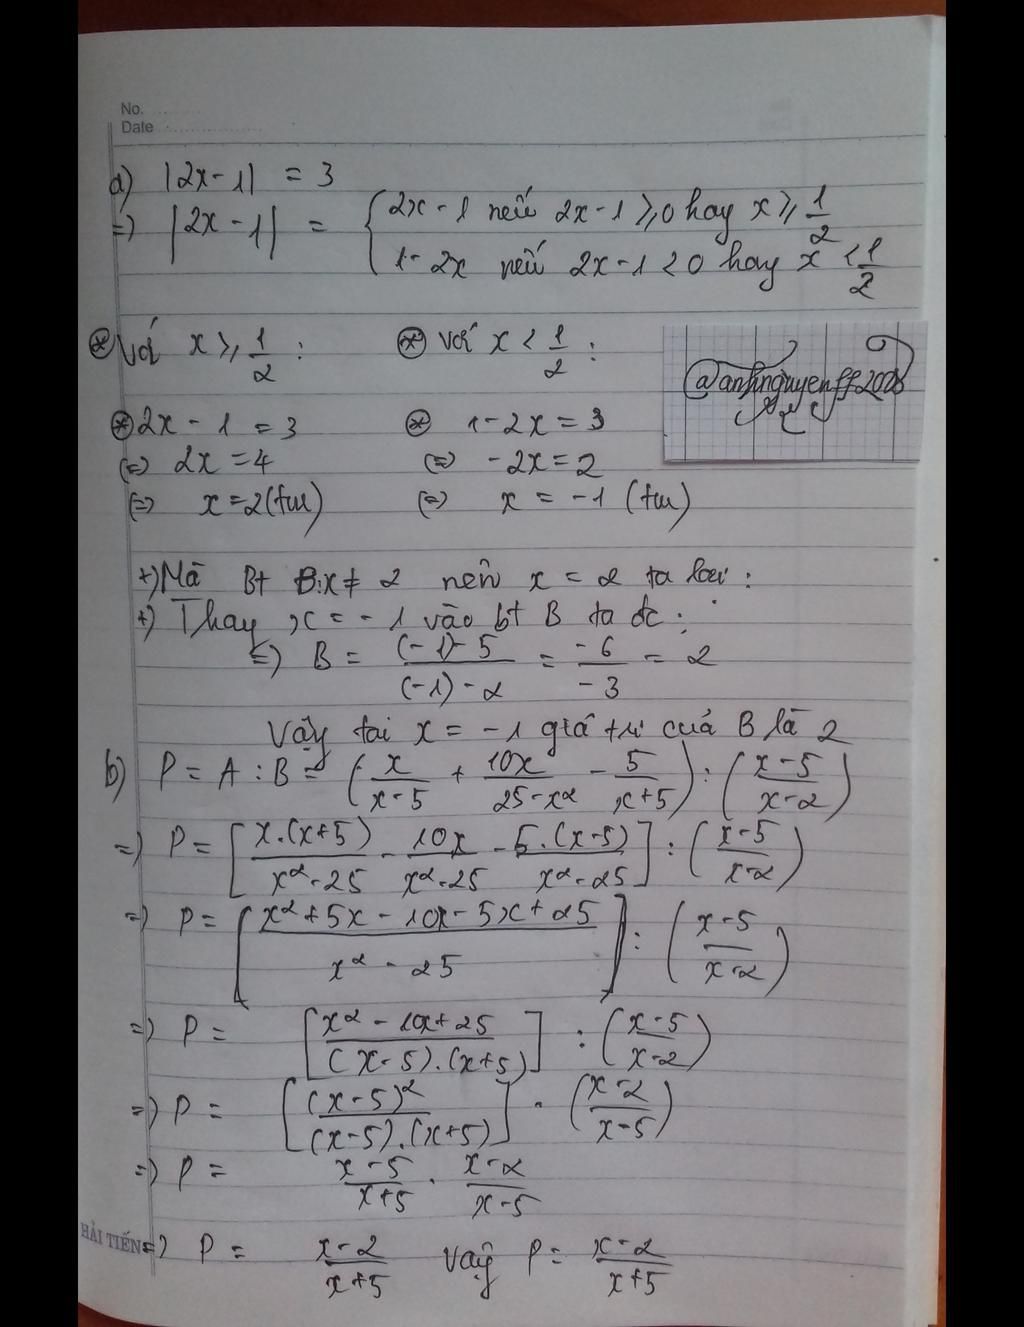 No.
Date
a) |2x-1| = 3
=) |2x-1| = { 2x-1 nếu 2x-1 ⩾ 0 hay x ⩾ 1/2
1-2x nếu 2x-1 < 0 hay x < 1/2
⊛ Với x ⩾ 1/2 : ⊛ với x < 1/2 :
@anhnguyenff2008
⊛ 2x - 1 = 3 ⊛ 1-2x = 3
(=) 2x = 4 (=) -2x = 2
(=) x = 2 (tm) (=) x = -1 (tm)
+) Mà Bt B: x ≠ 2 nên x = 2 ta loại :
+) Thay x = -1 vào bt B ta đc :
=) B = (-1)-5 / (-1)-2 = -6/-3 = 2
Vậy tại x = -1 giá trị của B là 2
b) P = A : B = (x/(x-5) + 10x/(25-x²) - 5/(x+5)) : ((x-5)/(x-2))
=) P = [x.(x+5)/(x²-25) - 10x/(x²-25) - 5.(x-5)/(x²-25)] : ((x-5)/(x-2))
=) P = [(x²+5x-10x-5x+25)/(x²-25)] : ((x-5)/(x-2))
=) P = [(x²-10x+25)/((x-5).(x+5))] : ((x-5)/(x-2))
=) P = [(x-5)²/((x-5).(x+5))] . ((x-2)/(x-5))
=) P = (x-5)/(x+5) . (x-2)/(x-5)
=) P = (x-2)/(x+5) vậy P = (x-2)/(x+5)
HẢI TIẾN